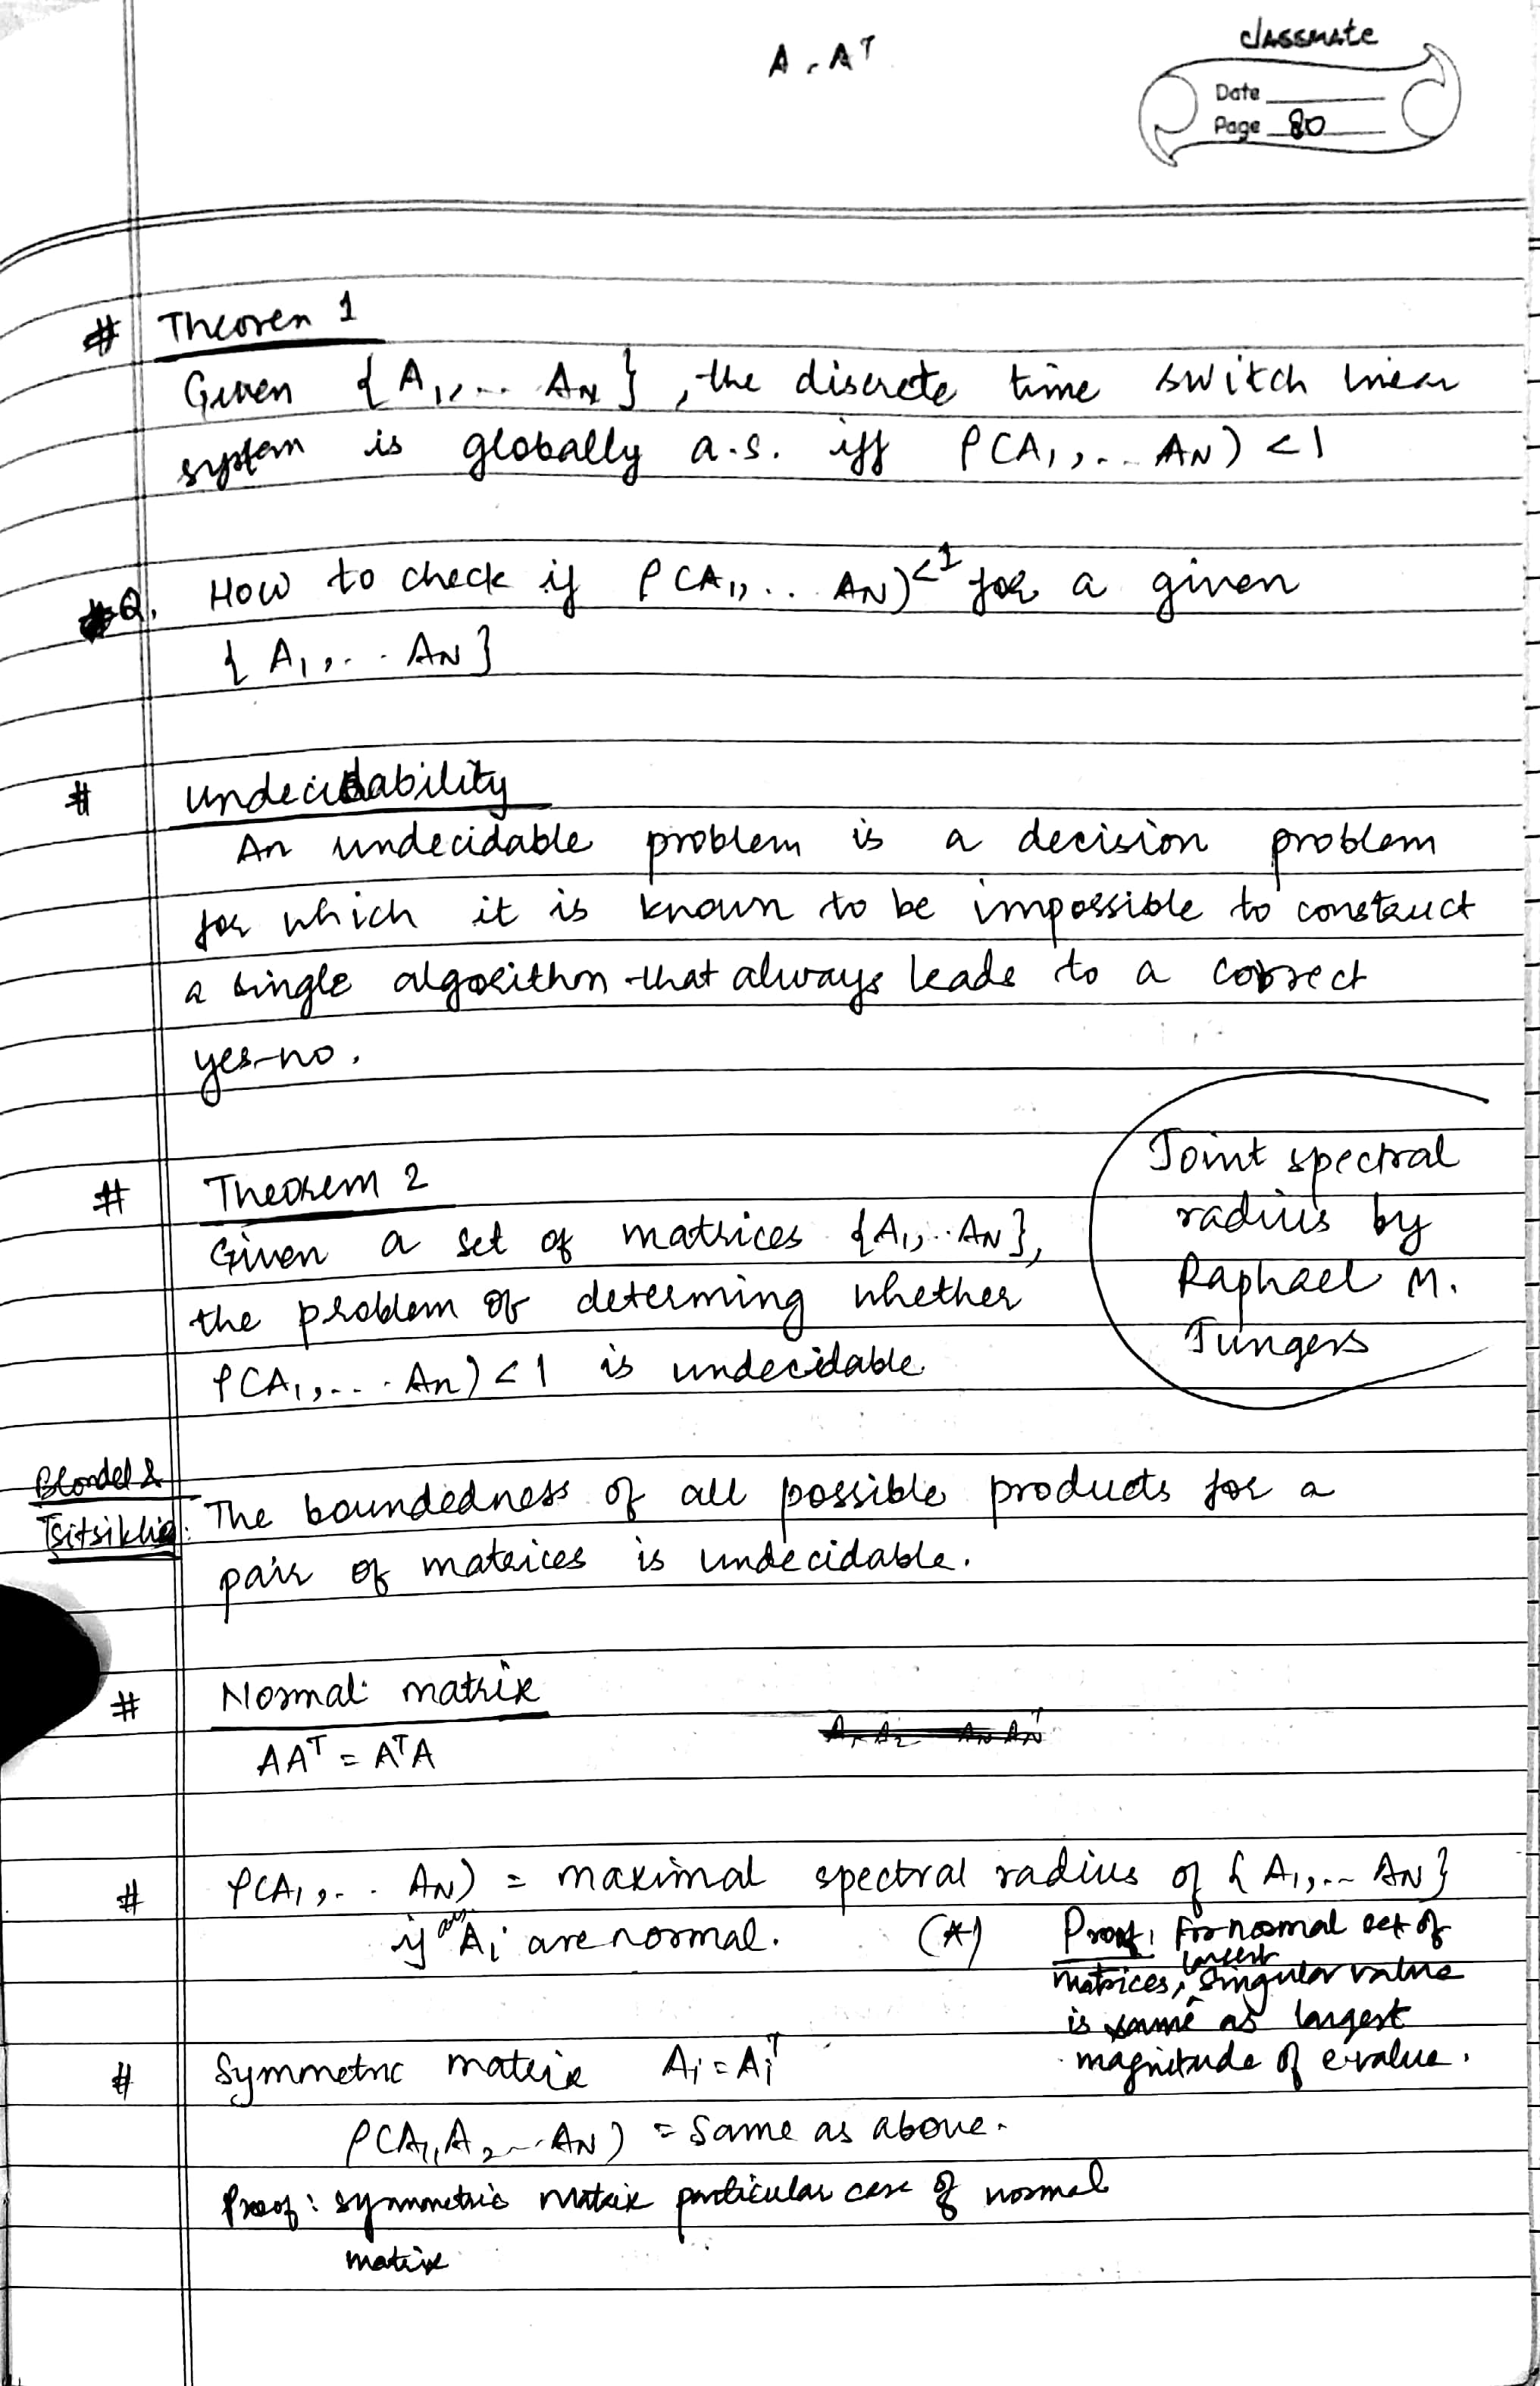 A, Aᵀ
classmate
Date
Page 80
# Theorem 1
Given {A₁,... A_N}, the discrete time switch linear
system is globally a.s. iff ρ(A₁,... A_N) < 1
Q. How to check if ρ(A₁,... A_N) <1 for a given
{A₁,... A_N}
# Undecidability
An undecidable problem is a decision problem
for which it is known to be impossible to construct
a single algorithm that always leads to a correct
yes-no.
# Theorem 2
Given a set of matrices {A₁,... A_N},
the problem of determing whether
ρ(A₁,... A_n) < 1 is undecidable.
Joint spectral
radius by
Raphael M.
Jungers
Blondel &
Tsitsiklis:
The boundedness of all possible products for a
pair of matrices is undecidable.
# Normal matrix
AAᵀ = AᵀA
# ρ(A₁,... A_N) = maximal spectral radius of {A₁,... A_N}
if Aᵢ are normal. (*)
Proof: For normal set of
matrices, largest singular value
is same as largest
magnitude of e.value.
# Symmetric matrix Aᵢ = Aᵢᵀ
ρ(A₁,A₂... A_N) = Same as above.
Proof: symmetric matrix particular case of normal
matrix